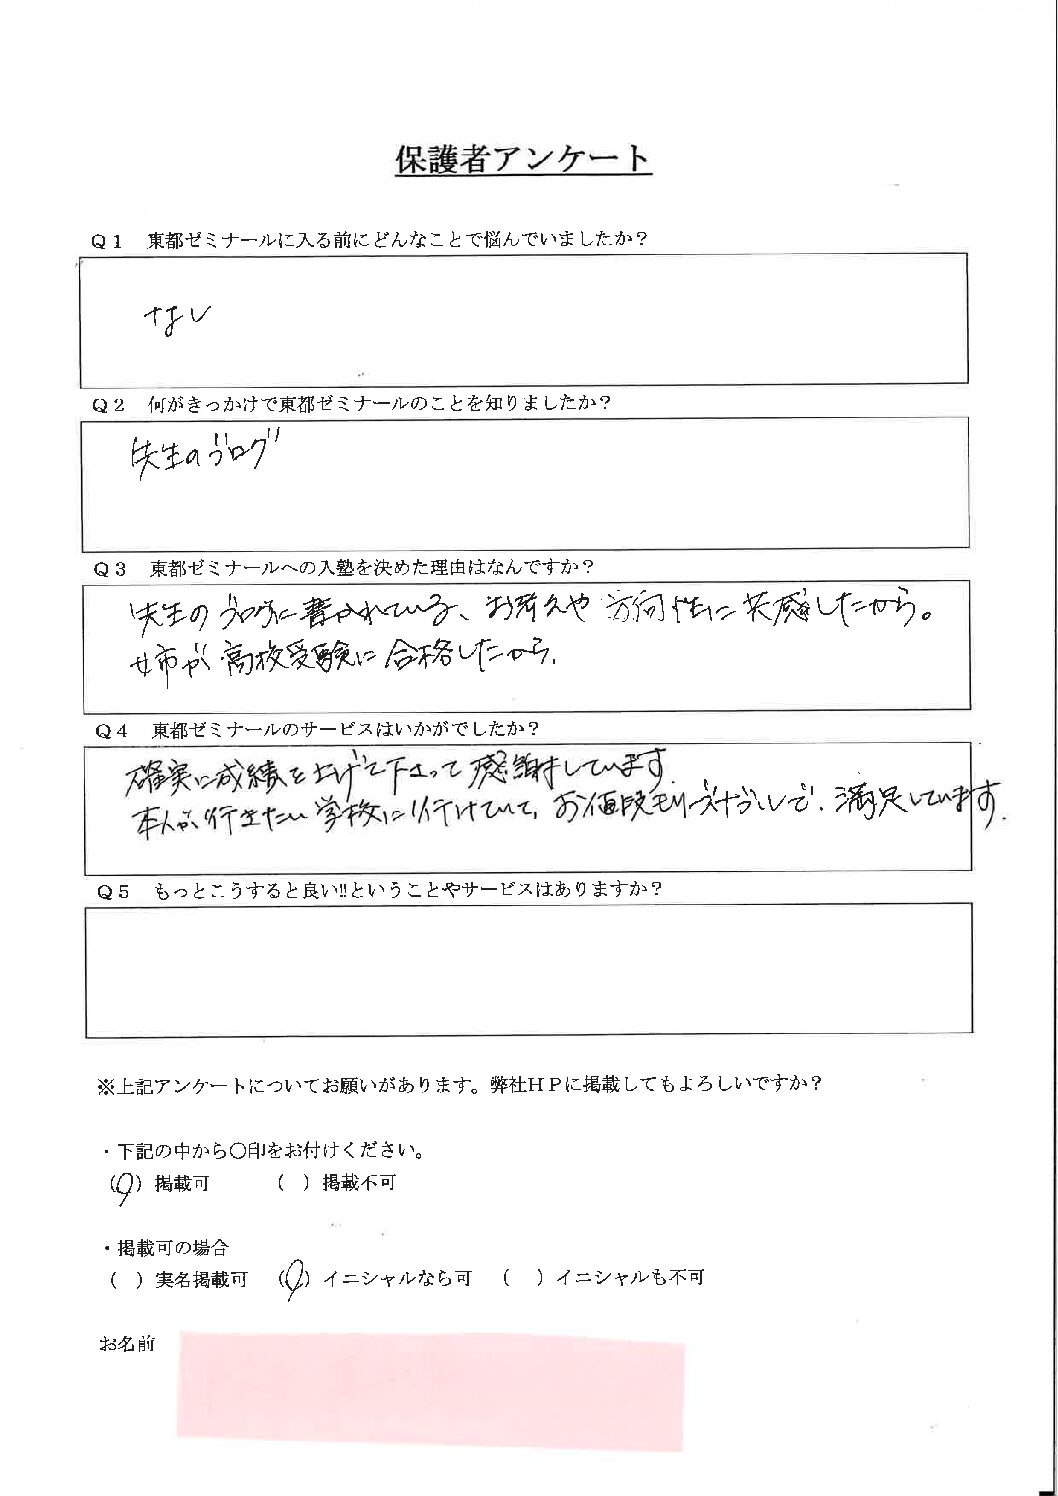 保護者アンケート
Q1 東都ゼミナールに入る前にどんなことで悩んでいましたか?
なし
Q2 何がきっかけで東都ゼミナールのことを知りましたか?
先生のブログ
Q3 東都ゼミナールへの入塾を決めた理由はなんですか?
先生のブログに書かれている、お考えや方向性に共感したから。
姉が高校受験に合格したから。
Q4 東都ゼミナールのサービスはいかがでしたか?
確実に成績を上げて下さって感謝しています。
本人が行きたい学校に行けていて、お値段もリーズナブルで、満足しています。
Q5 もっとこうすると良い!!ということやサービスはありますか?
※上記アンケートについてお願いがあります。弊社HPに掲載してもよろしいですか?
・下記の中から〇印をお付けください。
(〇)掲載可 ( )掲載不可
・掲載可の場合
( )実名掲載可 (〇)イニシャルなら可 ( )イニシャルも不可
お名前